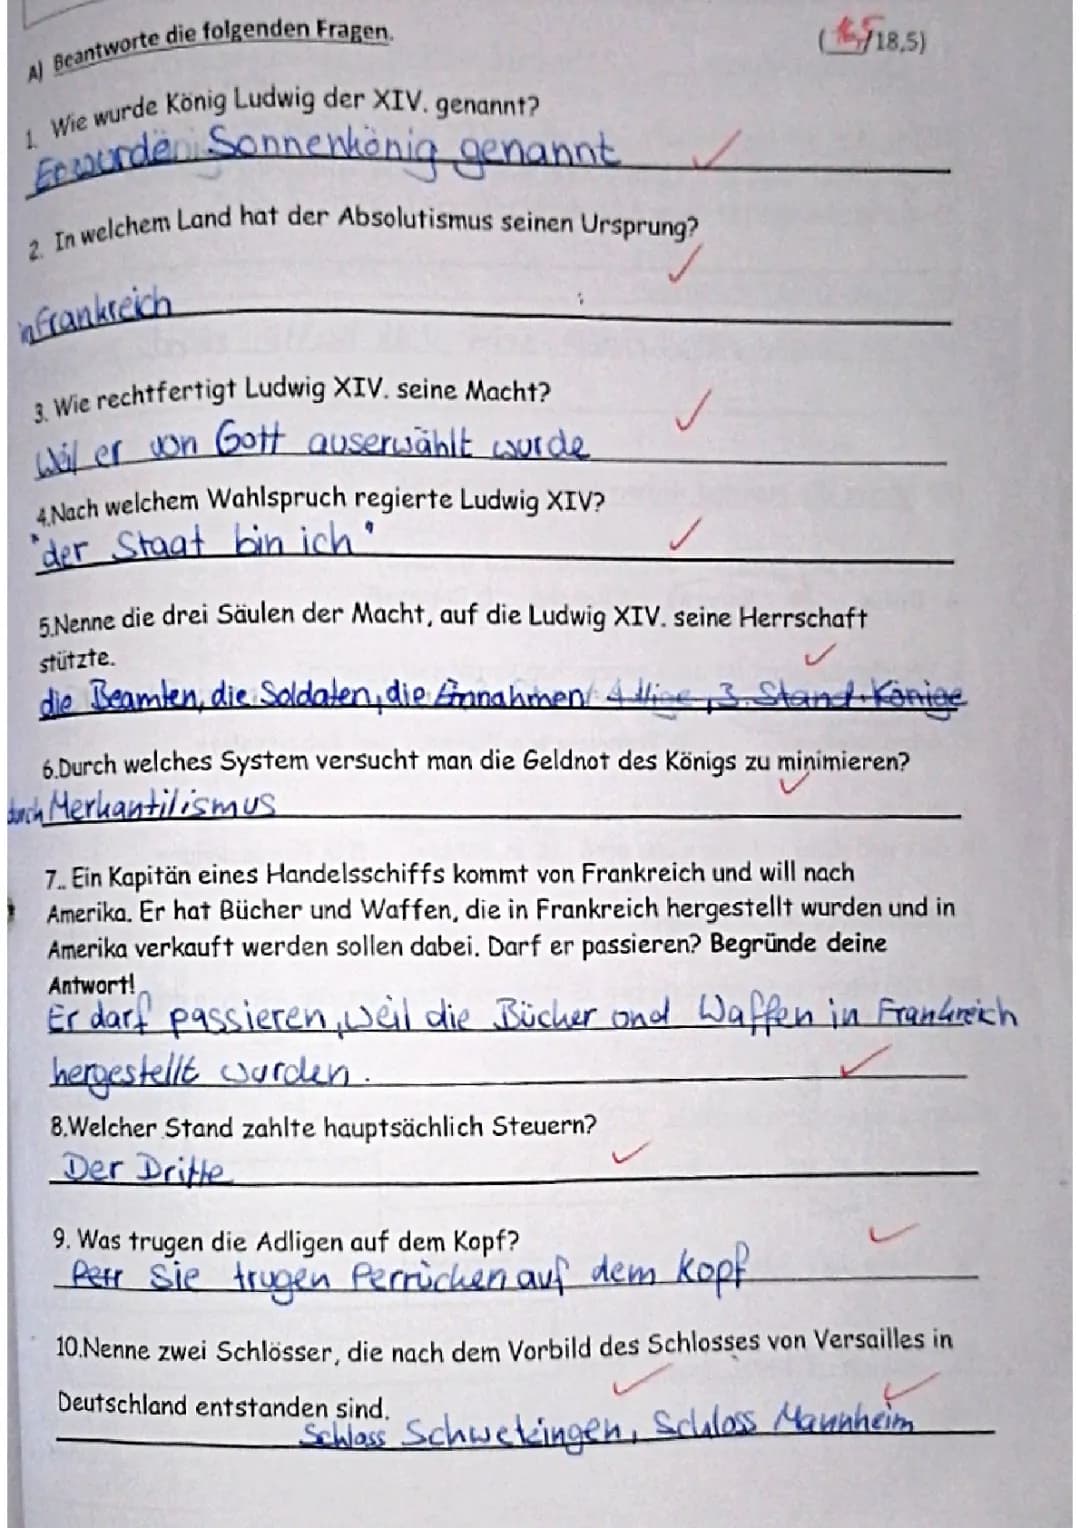 A) Beantworte die folgenden Fragen.
( /18,5)
1. Wie wurde König Ludwig der XIV. genannt?
Er wurden Sonnenkönig genannt
2. In welchem Land hat der Absolutismus seinen Ursprung?
in Frankreich
3. Wie rechtfertigt Ludwig XIV. seine Macht?
Weil er von Gott auserwählt wurde
4.Nach welchem Wahlspruch regierte Ludwig XIV?
"der Staat bin ich"
5.Nenne die drei Säulen der Macht, auf die Ludwig XIV. seine Herrschaft
stützte.
die Beamten, die Soldaten, die Einnahmen 3. Stand Könige
6.Durch welches System versucht man die Geldnot des Königs zu minimieren?
durch Merkantilismus
7.. Ein Kapitän eines Handelsschiffs kommt von Frankreich und will nach
Amerika. Er hat Bücher und Waffen, die in Frankreich hergestellt wurden und in
Amerika verkauft werden sollen dabei. Darf er passieren? Begründe deine
Antwort!
Er darf passieren, weil die Bücher ond Waffen in Frankreich
hergestellt wurden.
8.Welcher Stand zahlte hauptsächlich Steuern?
Der Dritte
9. Was trugen die Adligen auf dem Kopf?
Perr Sie trugen Perrücken auf dem kopf
10.Nenne zwei Schlösser, die nach dem Vorbild des Schlosses von Versailles in
Deutschland entstanden sind.
Schloss Schwetzingen, Schloss Mannheim